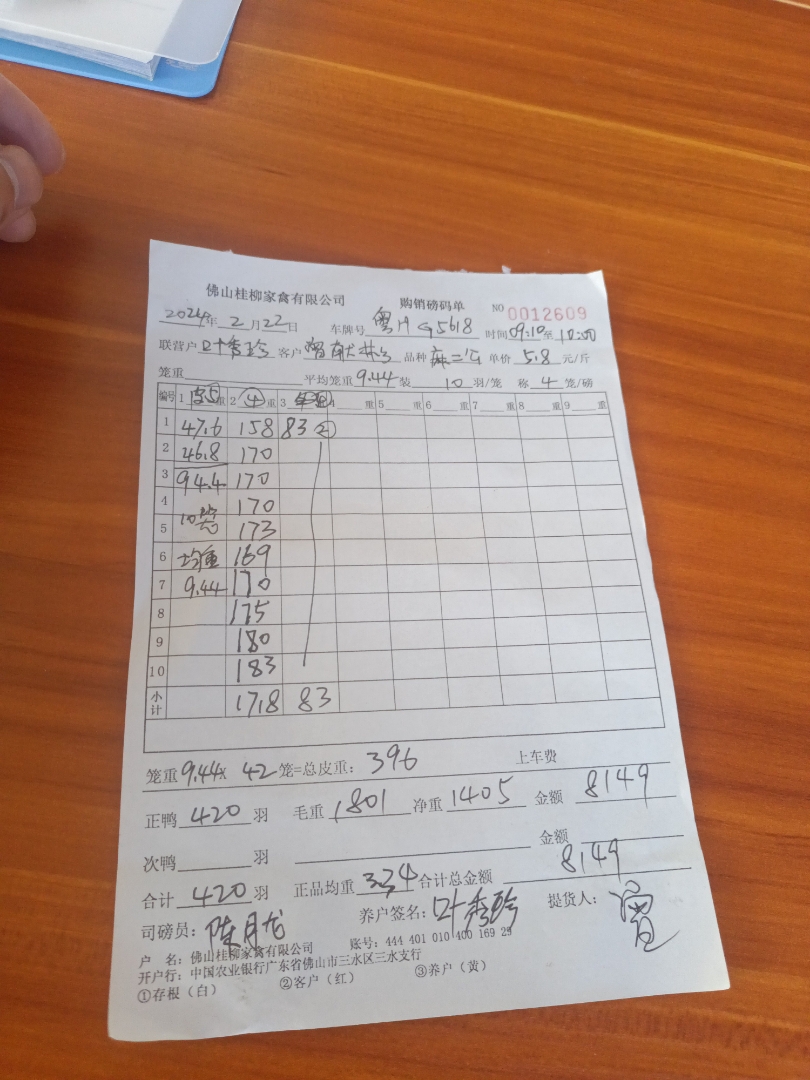 佛山桂柳家禽有限公司 购销磅码单 NO 0012609
2024年 2月22日 车牌号 粤H G5618 时间09:10至10:00
联营户 叶秀珍 客户 品种 麻二 单价 5.8 元/斤
笼重 平均笼重 9.44 装 10 羽/笼 称 4 笼/磅
编号 1 皮5 重 2 ④ 重 3 重 4 重 5 重 6 重 7 重 8 重 9 重
1 47.6 158 83 ②
2 46.8 170
3 94.4 170
4 170
5 10笼 173
6 均重 169
7 9.44 170
8 175
9 180
10 183
小计 1718 83
笼重 9.44 X 42 笼=总皮重: 396 上车费
正鸭 420 羽 毛重 1801 净重 1405 金额 8149
次鸭 羽 金额
合计 420 羽 正品均重 3.34 合计总金额 8149
司磅员: 陈月龙 养户签名: 叶秀珍 提货人:
户 名: 佛山桂柳家禽有限公司 账号: 444 401 010 400 169 29
开户行: 中国农业银行广东省佛山市三水区三水支行
①存根（白） ②客户（红） ③养户（黄）